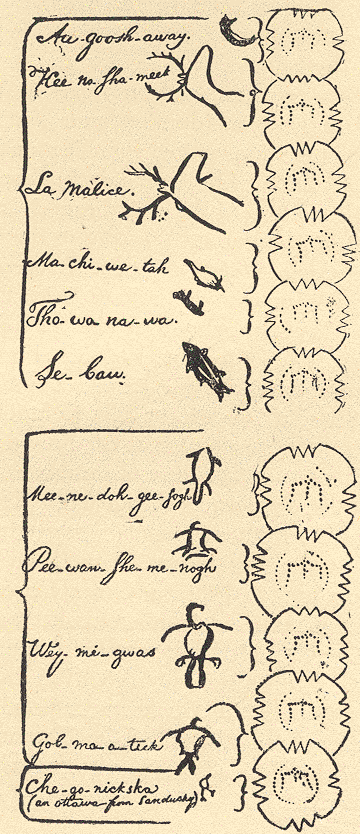 Au-goosh-away.
Kee-no-sha-meek
La Malice.
Ma-chi-we-tah
Tho-wa-na-wa.
Se-baw.
Mee-ne-doh-gee-sogh
Pee-wan-she-me-nogh
Wey-me-gwas
Gob-ma-a-tick
Che-go-nickska
(an ottawa from Sandusky)